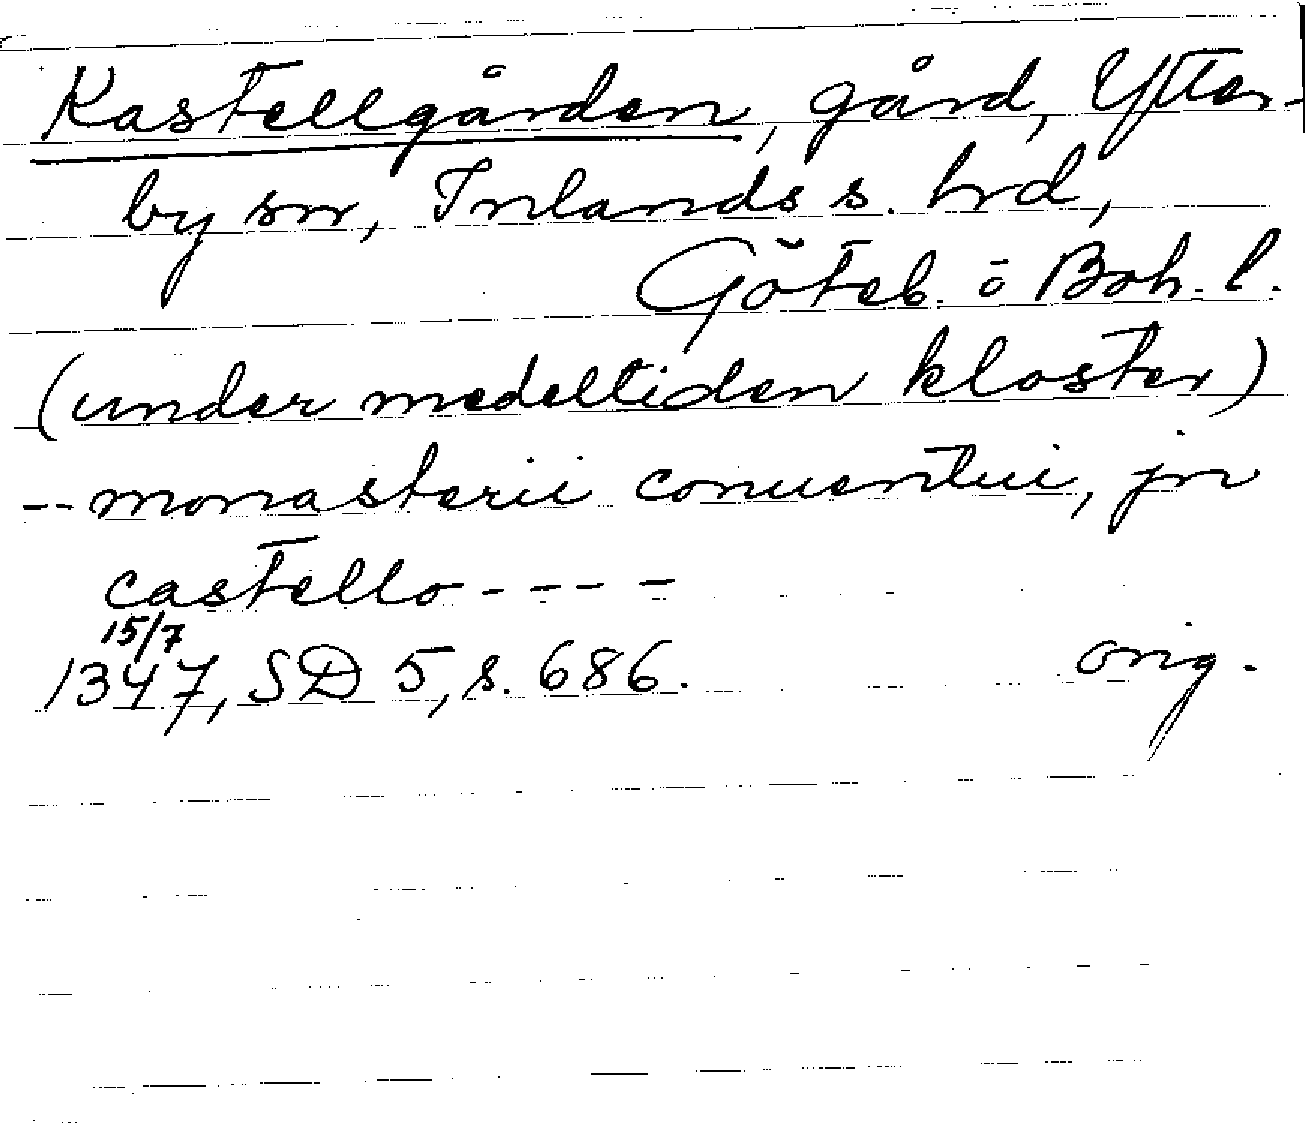 Kastellgården, gård, Ytter-
by sn, Inlands s. hrd,
Göteb. o Boh. l.
(under medeltiden kloster)
-- monasterii conuentui, jn
castello ----
15/7
1347, SD 5, s. 686. orig.